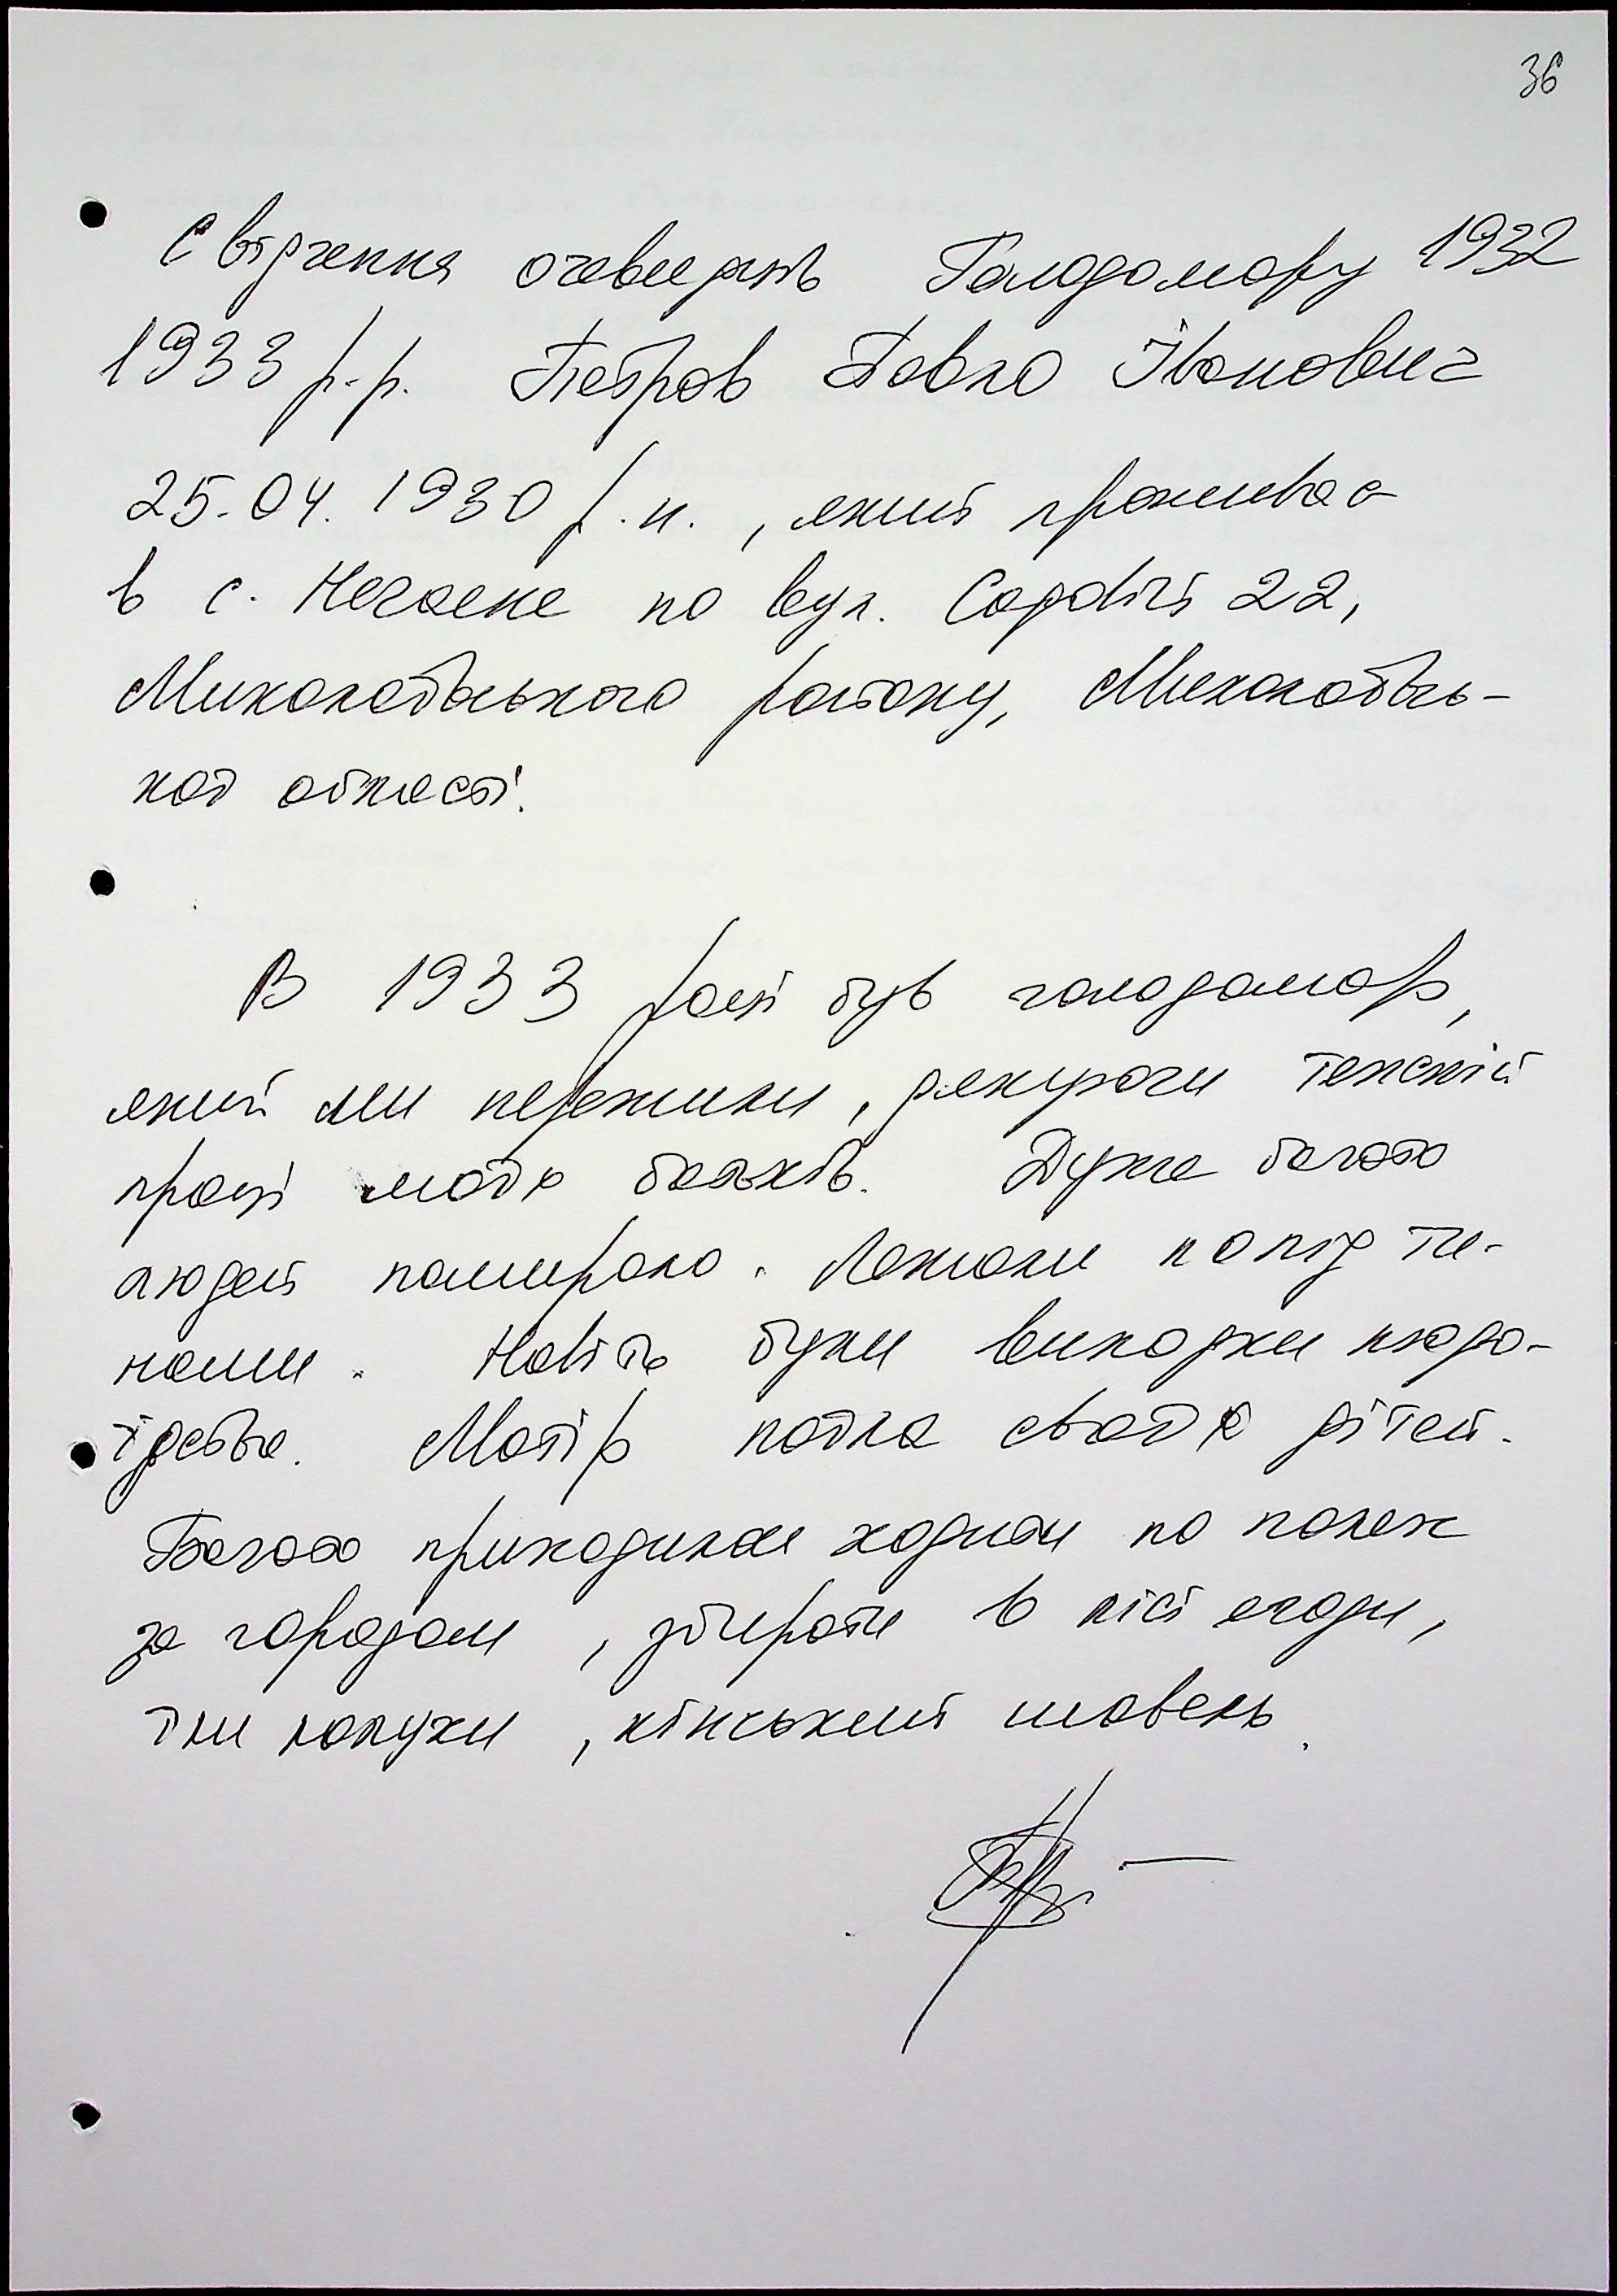 36
Свідчення очевидців Голодомору 1932
1933 р.р. Петров Павло Іванович
25.04.1930 р.н., який проживає
в с. Нечаяне по вул. Садовій 22,
Миколаївського району, Миколаївсь-
кої області.
В 1933 році був голодомор,
який ми пережили, дякуючи тяжкій
праці моїх батьків. Дуже багато
людей помирало. Лежали попід ти-
нами. Навіть були випадки людо-
їдства. Матір поїла своїх дітей.
Багато приходилося ходити по полях
за городом, збирати в лісі ягоди,
їли лопухи, кінський щавель.